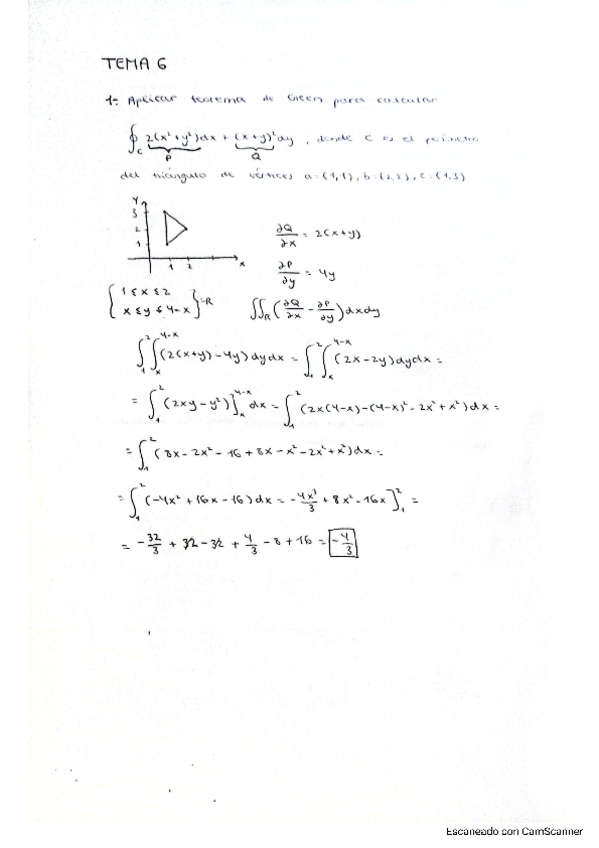 TEMA 6
1- Aplicar teorema de Green para calcular
∮_C 2(x²+y²)dx + (x+y)²dy , donde C es el perímetro
P Q
del triángulo de vértices a=(1,1), b=(2,2), c=(1,3)
y
3
2
1
1 2 x
∂Q/∂x = 2(x+y)
∂P/∂y = 4y
{ 1≤x≤2
x≤y≤4-x } = R ∬_R (∂Q/∂x - ∂P/∂y) dxdy
∫_1^2 ∫_x^{4-x} (2(x+y)-4y) dydx = ∫_1^2 ∫_x^{4-x} (2x-2y) dydx =
= ∫_1^2 (2xy-y²)]_x^{4-x} dx = ∫_1^2 (2x(4-x)-(4-x)²-2x²+x²) dx =
= ∫_1^2 (8x-2x²-16+8x-x²-2x²+x²) dx =
= ∫_1^2 (-4x²+16x-16) dx = -4x³/3 + 8x² - 16x]_1^2 =
= -32/3 + 32 - 32 + 4/3 - 8 + 16 = -4/3
Escaneado con CamScanner